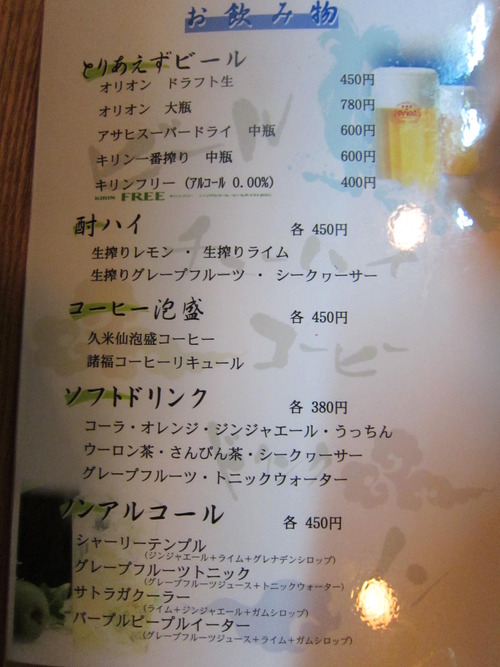 お飲み物
とりあえずビール
オリオン ドラフト生 450円
オリオン 大瓶 780円
アサヒスーパードライ 中瓶 600円
キリン一番搾り 中瓶 600円
キリンフリー (アルコール 0.00%) 400円
KIRIN FREE
酎ハイ 各 450円
生搾りレモン ・ 生搾りライム
生搾りグレープフルーツ ・ シークヮーサー
コーヒー泡盛 各 450円
久米仙泡盛コーヒー
諸福コーヒーリキュール
ソフトドリンク 各 380円
コーラ・オレンジ・ジンジャエール・うっちん
ウーロン茶・さんぴん茶・シークヮーサー
グレープフルーツ・トニックウォーター
ノンアルコール 各 450円
シャーリーテンプル
(ジンジャエール+ライム+グレナデンシロップ)
グレープフルーツトニック
(グレープフルーツジュース+トニックウォーター)
サトラガクーラー
(ライム+ジンジャエール+ガムシロップ)
パープルピープルイーター
(グレープフルーツジュース+ライム+ガムシロップ)